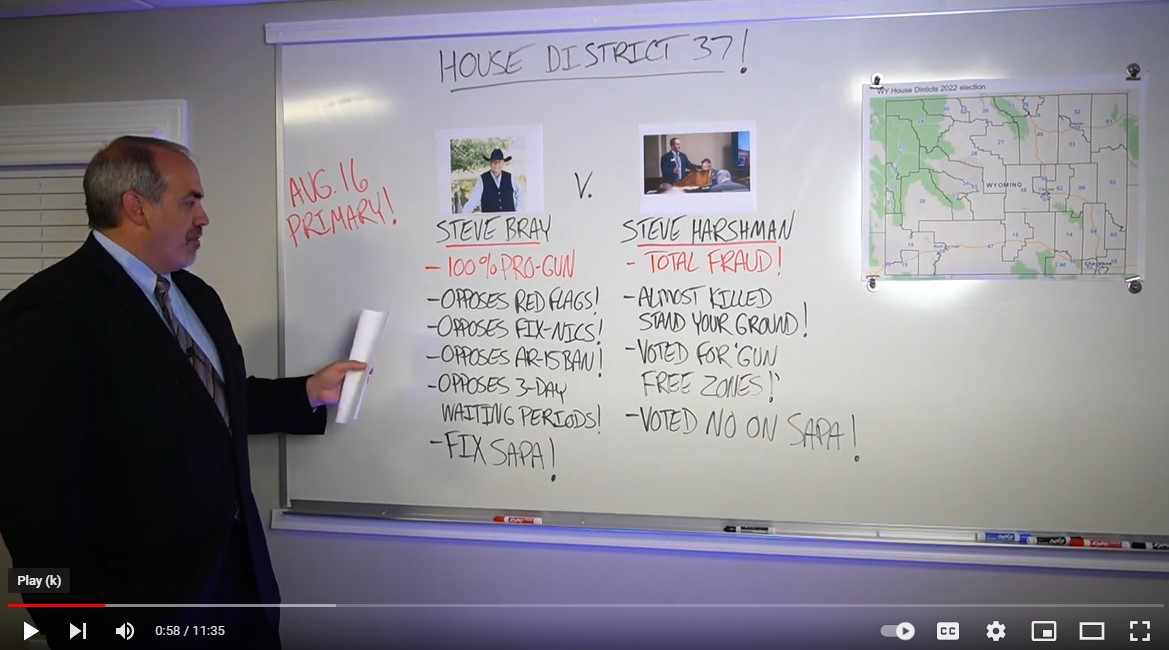 HOUSE DISTRICT 37!
WY House Disticts 2022 election
AUG. 16
PRIMARY!
V.
STEVE BRAY
- 100% PRO-GUN
- OPPOSES RED FLAGS!
- OPPOSES FIX-NICS!
- OPPOSES AR-15 BAN!
- OPPOSES 3-DAY
WAITING PERIODS!
- FIX SAPA!
STEVE HARSHMAN
- TOTAL FRAUD!
- ALMOST KILLED
STAND YOUR GROUND!
- VOTED FOR 'GUN
FREE ZONES!'
- VOTED NO ON SAPA!
WYOMING
Play (k)
0:58 / 11:35
CC